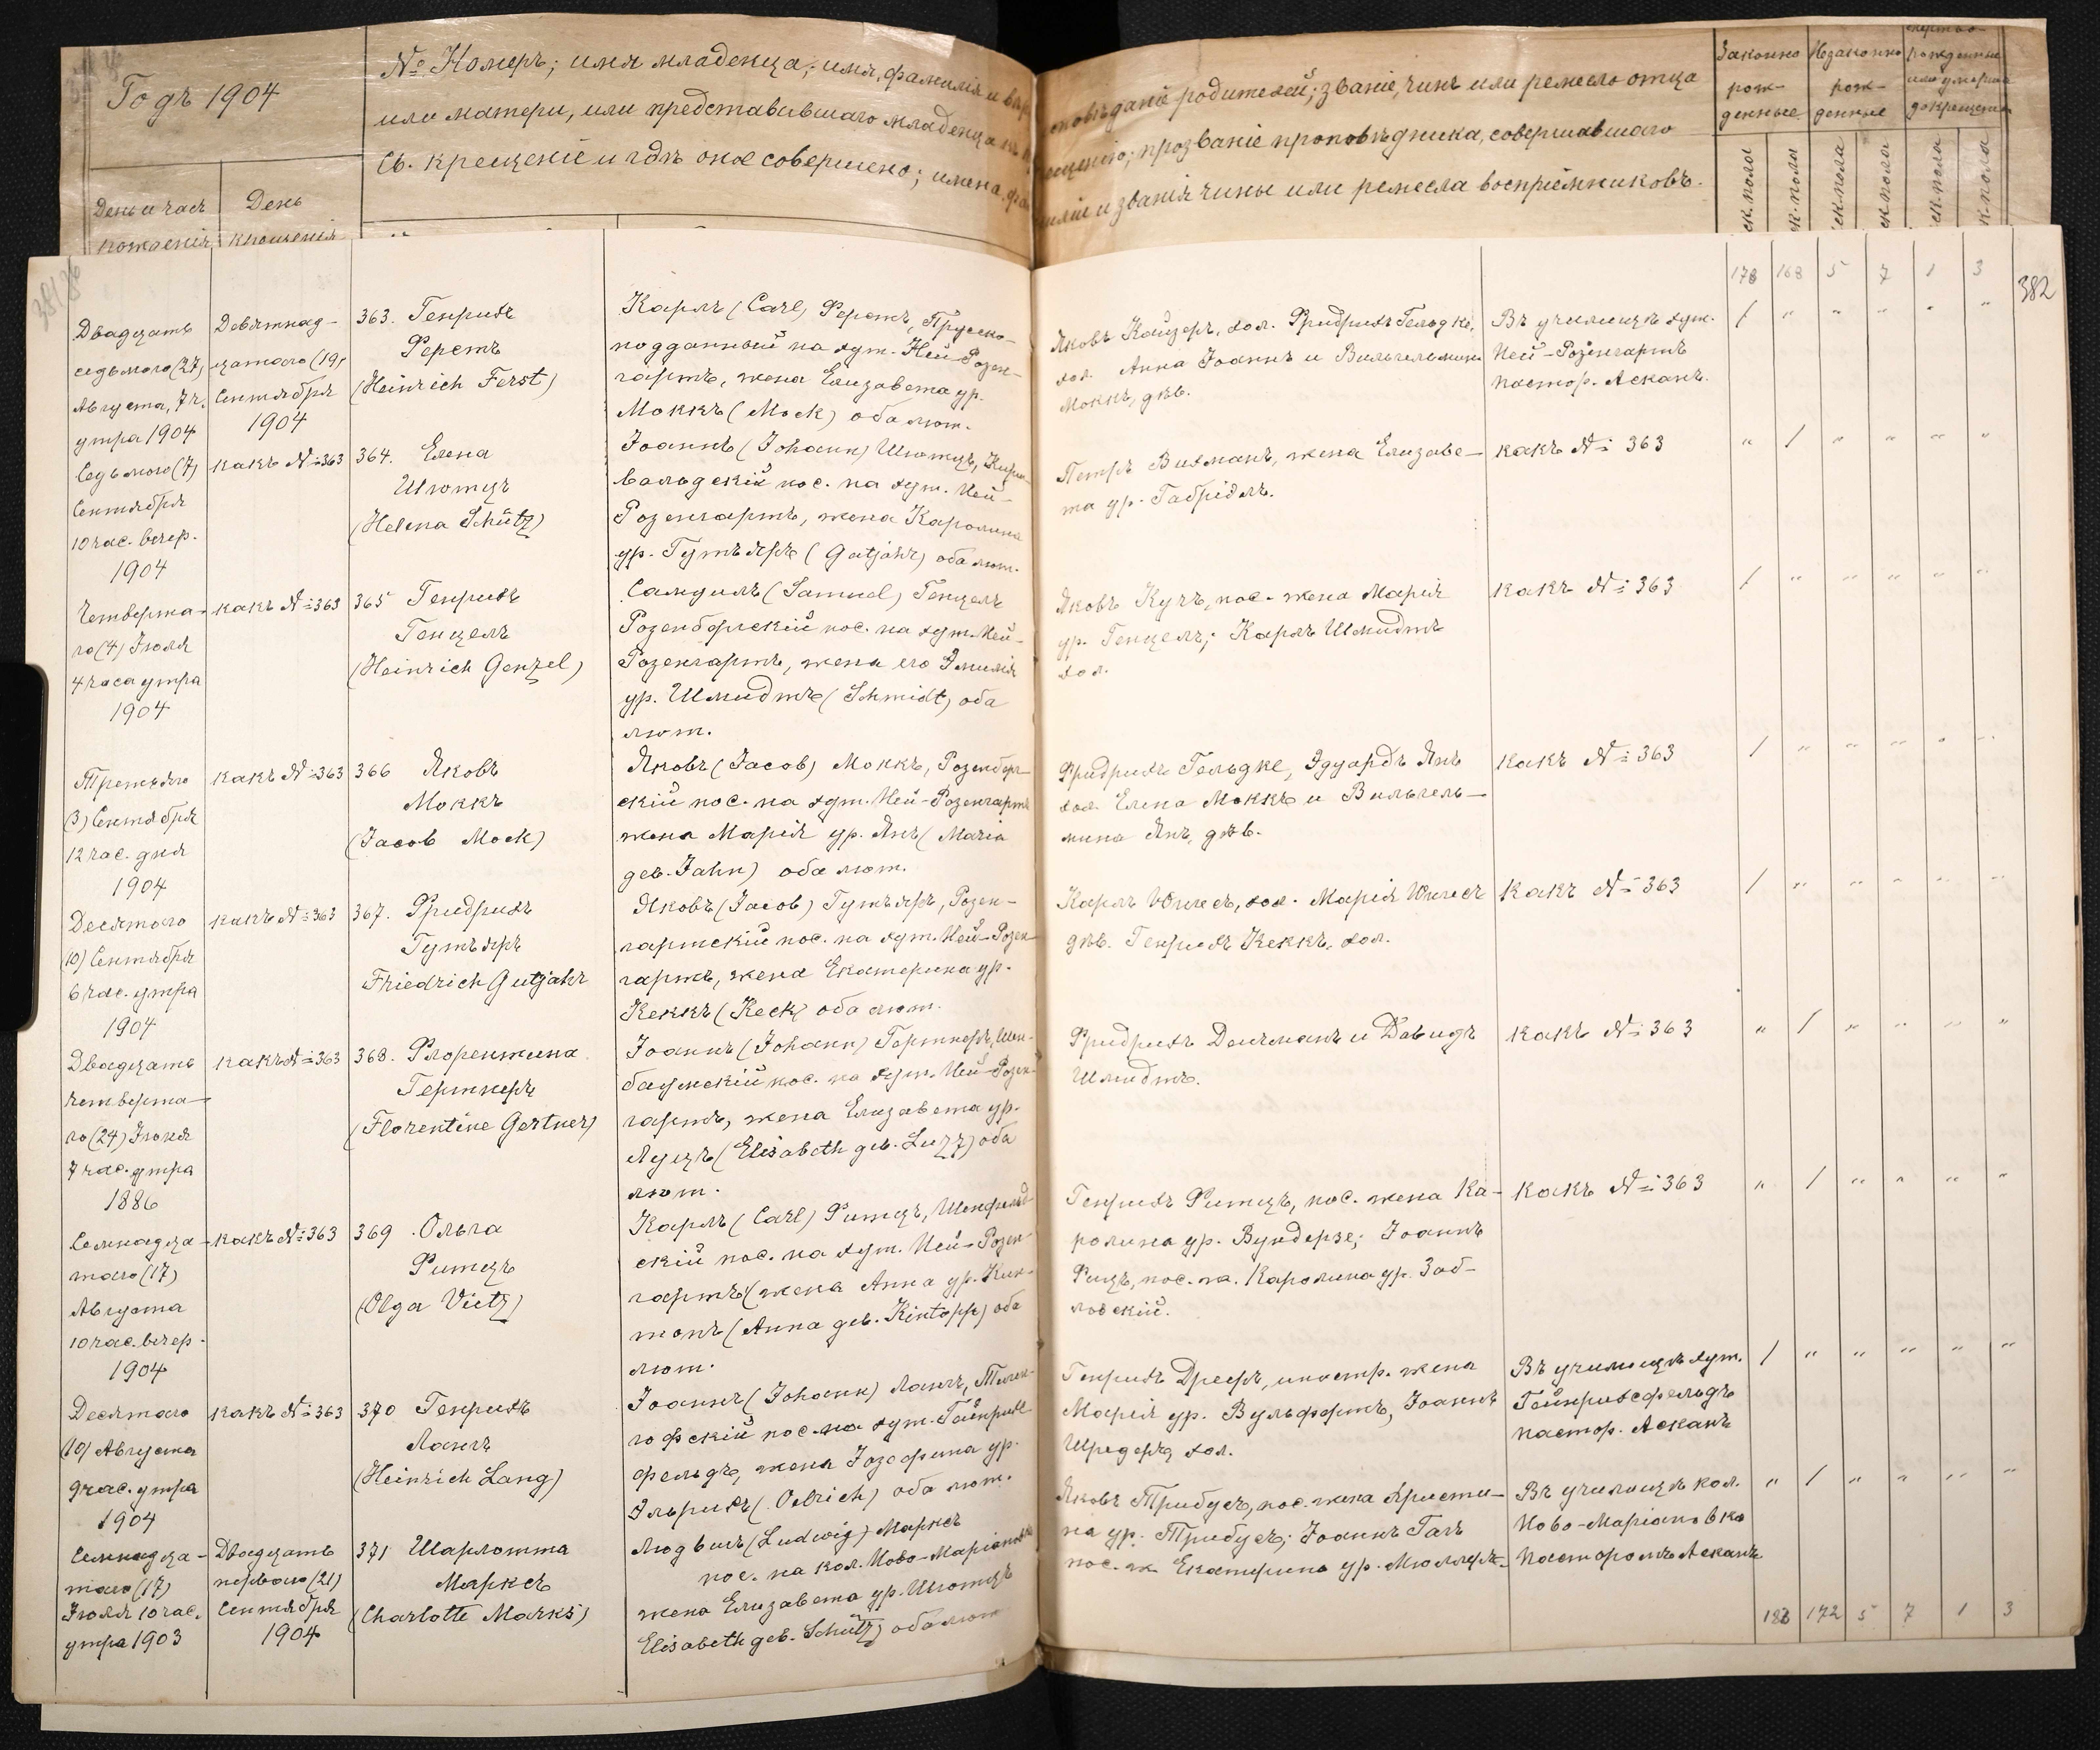 Годъ 1904
№ Номеръ; имя младенца; имя, фамилія и вѣроисповѣданіе родителей; званіе, чинъ или ремесло отца
или матери, или представившаго младенца къ крещенію; прозваніе проповѣдника, совершавшаго
Св. крещеніе и гдѣ оное совершено; имена, фамиліи и званія чины или ремесла воспріемниковъ.
День и часъ
рожденія
День
крещенія
Законно
рож-
денные
Незаконно
рож-
денные
рожденные
или умершіе
до крещенія
178 168 5 7 1 3
382
Двадцать
седьмого (27)
Августа, 7 ч.
утра 1904
Девятнад-
цатаго (19)
Сентября
1904
363. Генрихъ
Ферстъ
(Heinrich Ferst)
Карлъ (Carl) Ферстъ, Прусско-
подданный на хут. Ней-Розен-
гартъ, жена Елизавета ур.
Моккъ (Mock) оба лют.
Яковъ Кайзеръ, хол. Фридрихъ Гельдке,
хол. Анна Іоаннъ и Вильгельмина
Моккъ, дѣв.
Въ училищѣ хут.
Ней-Розенгартъ
пастор. Асканъ.
/ " " " " "
Седьмого (7)
Сентября
10 час. вечер.
1904
какъ № 363
364. Елена
Шютцъ
(Helena Schütz)
Іоаннъ (Johann) Шютцъ, Кирш-
вальдскій пос. на хут. Ней-
Розенгартъ, жена Каролина
ур. Гутъяръ (Gutjahr) оба лют.
Петръ Вихманъ, жена Елизаве-
та ур. Габріэлъ.
какъ № 363
" / " " " "
Четверта-
го (4) Іюля
4 часа утра
1904
какъ № 363
365 Генрихъ
Генцелъ
(Heinrich Genzel)
Самуилъ (Samuel) Генцелъ
Розенбергскій пос. на хут. Ней-
Розенгартъ, жена его Эмилія
ур. Шмидтъ (Schmidt) оба
лют.
Яковъ Кучъ, пос. жена Марія
ур. Генцелъ; Карлъ Шмидтъ
хол.
какъ № 363
/ " " " " "
Третьяго
(3) Сентября
12 час. дня
1904
какъ № 363
366 Яковъ
Моккъ
(Jacob Mock)
Яковъ (Jacob) Моккъ, Розенберг-
скій пос. на хут. Ней-Розенгартъ
жена Марія ур. Янъ (Maria
geb. Jahn) оба лют.
Фридрихъ Гельдке, Эдуардъ Янъ
хол. Елена Моккъ и Вильгель-
мина Янъ, дѣв.
какъ № 363
/ " " " " "
Десятаго
(10) Сентября
6 час. утра
1904
какъ № 363
367. Фридрихъ
Гутъяръ
Friedrich Gutjahr
Яковъ (Jacob) Гутъяръ, Розен-
гартскій пос. на хут. Ней-Розен-
гартъ, жена Екатерина ур.
Кеккъ (Keck) оба лют.
Карлъ хол. Марія
дѣв. Генрихъ Кеккъ, хол.
какъ № 363
/ " " " " "
Двадцать
четверта-
го (24) Іюня
7 час. утра
1886
какъ № 363
368. Флорентина
Гертнеръ
(Florentine Gertner)
Іоаннъ (Johann) Гертнеръ, Шен-
баумскій пос. на хут. Ней-Розен-
гартъ, жена Елизавета ур.
Луцъ (Elisabeth geb. Luzz) оба
лют.
Фридрихъ Дейчманъ и Давидъ
Шмидтъ.
какъ № 363
" / " " " "
Семнадца-
таго (17)
Августа
10 час. вечер.
1904
какъ № 363
369 Ольга
Фитцъ
(Olga Vietz)
Карлъ (Carl) Фитцъ, Шенфельд-
скій пос. на хут. Ней-Розен-
гартъ (жена Анна ур. Кин-
топъ (Anna geb. Kintopp) оба
лют.
Генрихъ Фитцъ, пос. жена Ка-
ролина ур. Вундерзе; Іоаннъ
Фицъ, пос. ж. Каролина ур. Заб-
ловскій.
какъ № 363
" / " " " "
Десятаго
(10) Августа
9 час. утра
1904
какъ № 363
370 Генрихъ
Лангъ
(Heinrich Lang)
Іоаннъ (Johann) Лангъ, Тиген-
гофскій пос. на хут. Гейнрихс-
фельдъ, жена Іозефина ур.
Эльрихъ (Oelrich) оба лют.
Генрихъ Дрееръ, иностр. жена
Марія ур. Вульффтъ, Іоаннъ
Шредеръ хол.
Въ училищѣ хут.
Гейнрихсфельдъ
пастор. Асканъ
/ " " " " "
Семнадца-
таго (17)
Іюля 10 час.
утра 1903
Двадцать
перваго (21)
Сентября
1904
371 Шарлотта
Марксъ
(Charlotte Marks)
Людвигъ (Ludwig) Марксъ
пос. на кол. Ново-Маріановка
жена Елизавета ур. Шютцъ
Elisabeth geb. Schütz) оба лют
Яковъ Трибусъ, пос. жена Христи-
на ур. Трибусъ; Іоаннъ Галъ
пос. ж Екатерина ур. Мюллеръ.
Въ училищѣ кол.
Ново-Маріановка
Пасторомъ Асканъ
" / " " " "
183 172 5 7 1 3